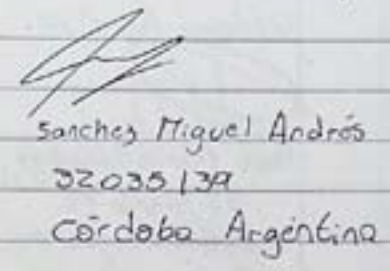 Sanchez Miguel Andrés
32035139
Córdoba Argentina